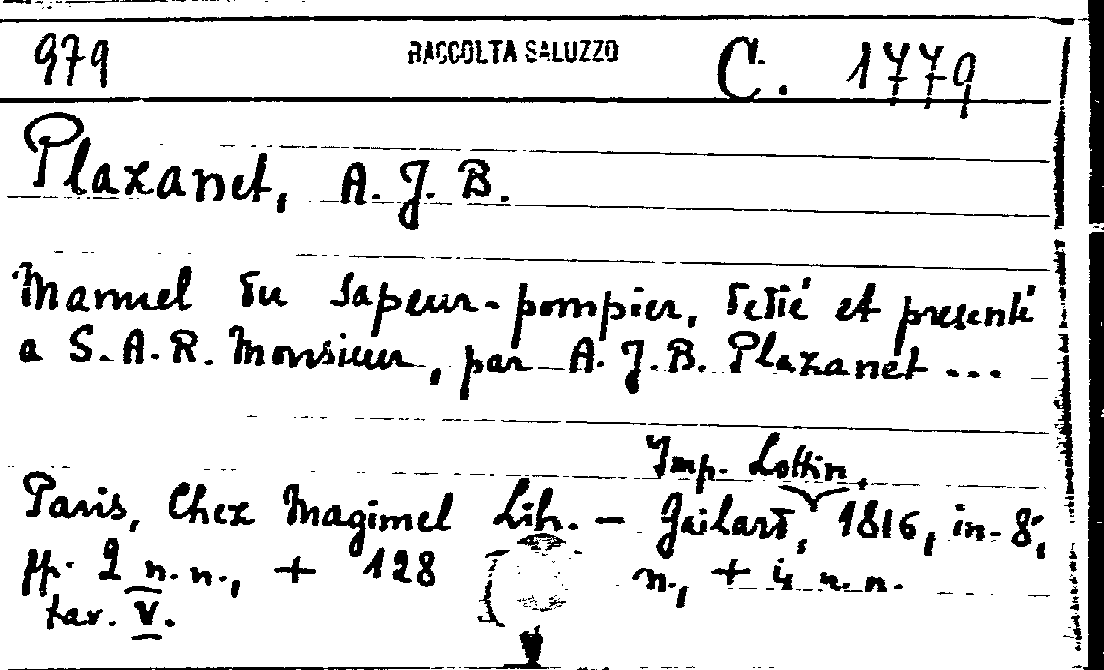 979 RACCOLTA SALUZZO C. 1779
Plazanet, A. J. B.
Manuel du sapeur-pompier, dedié et presenté
a S. A. R. Monsieur, par A. J. B. Plazanet ...
Imp. Lottin,
Paris, Chez Magimel Lib. - Jailard, 1816, in-8;
pp. 2 n.n., + 128 n., + 4 n.n.
tav. V.